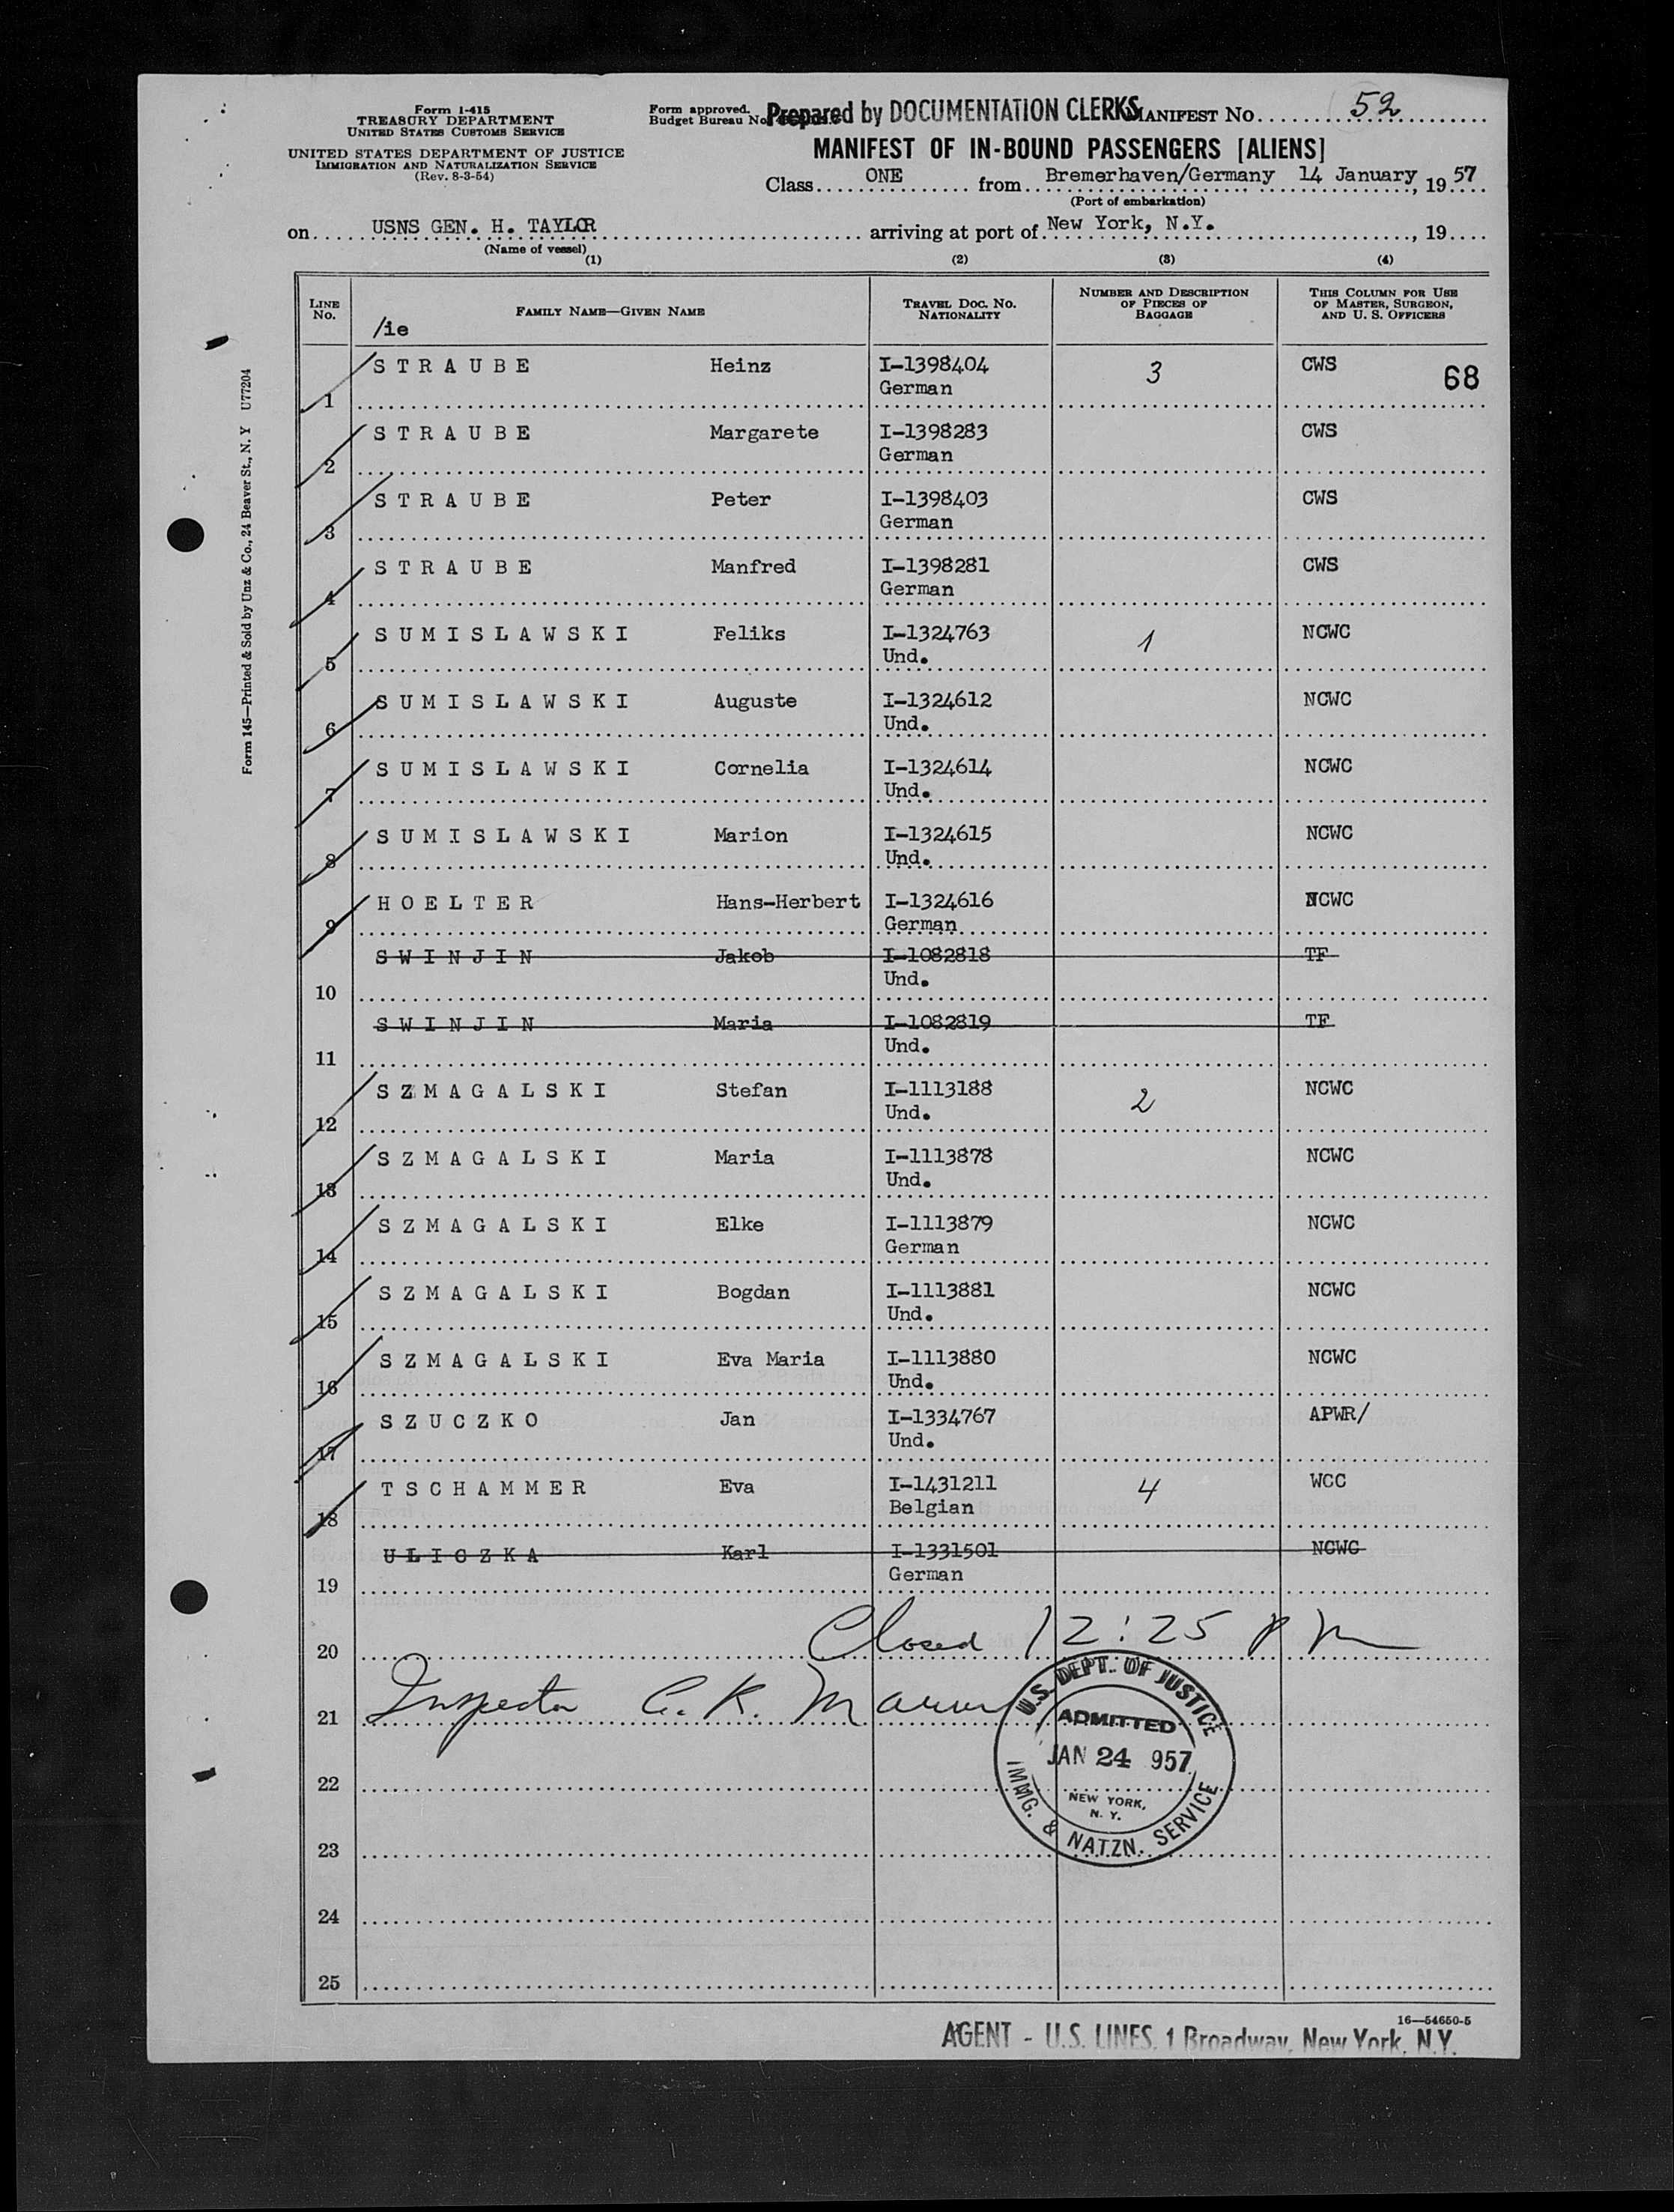 Form I-418
TREASURY DEPARTMENT
UNITED STATES CUSTOMS SERVICE
UNITED STATES DEPARTMENT OF JUSTICE
IMMIGRATION AND NATURALIZATION SERVICE
(Rev. 8-3-54)
Form approved.
Budget Bureau No.
Prepared by DOCUMENTATION CLERKS
MANIFEST No. 52
MANIFEST OF IN-BOUND PASSENGERS [ALIENS]
Class ONE from Bremerhaven/Germany 14 January, 1957
(Port of embarkation)
on USNS GEN. H. TAYLOR arriving at port of New York, N.Y. , 19
(Name of vessel)
(1) (2) (3) (4)
LINE No. FAMILY NAME—GIVEN NAME TRAVEL DOC. No. NATIONALITY NUMBER AND DESCRIPTION OF PIECES OF BAGGAGE THIS COLUMN FOR USE OF MASTER, SURGEON, AND U. S. OFFICERS
/ie
STRAUBE Heinz I-1398404 3 CWS 68
1 German
STRAUBE Margarete I-1398283 CWS
2 German
STRAUBE Peter I-1398403 CWS
3 German
STRAUBE Manfred I-1398281 CWS
4 German
SUMISLAWSKI Feliks I-1324763 1 NCWC
5 Und.
SUMISLAWSKI Auguste I-1324612 NCWC
6 Und.
SUMISLAWSKI Cornelia I-1324614 NCWC
7 Und.
SUMISLAWSKI Marion I-1324615 NCWC
8 Und.
HOELTER Hans-Herbert I-1324616 NCWC
9 German
SWINJIN Jakob I-1082818 TF
10 Und.
SWINJIN Maria I-1082819 TF
11 Und.
SZMAGALSKI Stefan I-1113188 2 NCWC
12 Und.
SZMAGALSKI Maria I-1113878 NCWC
13 Und.
SZMAGALSKI Elke I-1113879 NCWC
14 German
SZMAGALSKI Bogdan I-1113881 NCWC
15 Und.
SZMAGALSKI Eva Maria I-1113880 NCWC
16 Und.
SZUCZKO Jan I-1334767 APWR/
17 Und.
TSCHAMMER Eva I-1431211 4 WCC
18 Belgian
ULICZKA Karl I-1331501 NCWC
19 German
20 Closed 12:25 pm
21 Inspector C. K.
U.S. DEPT. OF JUSTICE
ADMITTED
JAN 24 957
NEW YORK,
N. Y.
IMMG. & NATZN. SERVICE
22
23
24
25
16—54650-5
AGENT - U.S. LINES, 1 Broadway, New York, N.Y.
Form 145—Printed & Sold by Unz & Co., 24 Beaver St., N. Y U77204